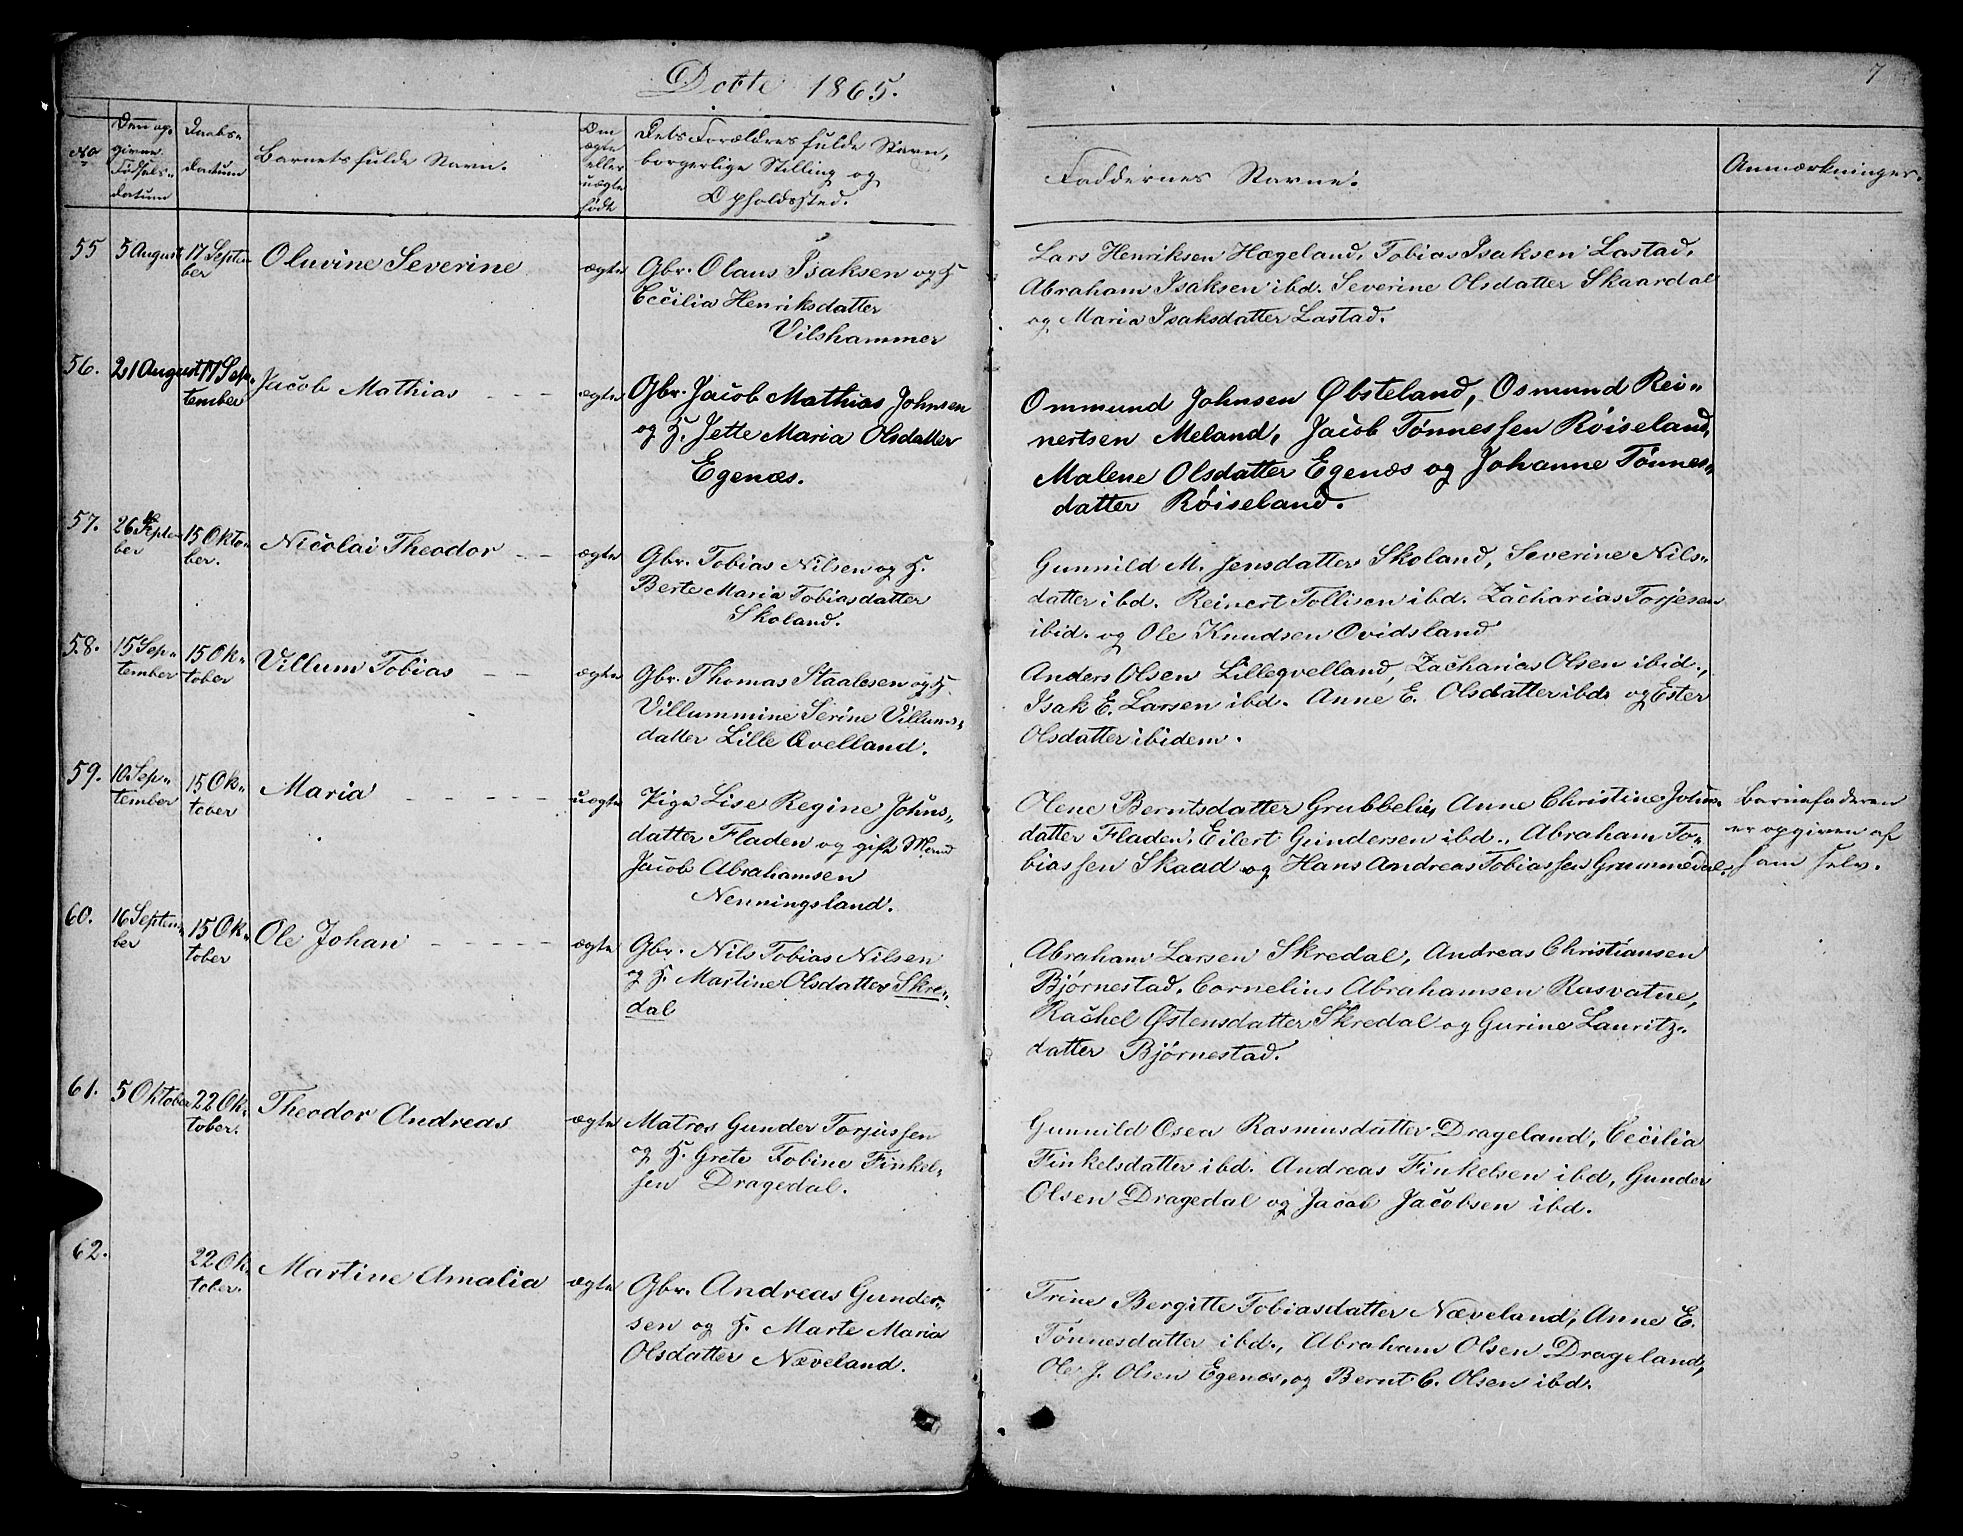 Døbte 1865.
7
No
Den op-
givne
Fødsels-
datum
Daabs-
datum
Barnets fulde Navn.
Om
ægte
eller
uægte
født
Dets Forældres fulde Navn,
borgerlige Stilling og
Opholdssted.
Faddernes Navne.
Anmærkninger.
55
5 August
17 Septem
ber
Oluvine Severine
ægte
Gbr. Olaus Isaksen og H.
Cecilia Henriksdatter
Vilshammer
Lars Henriksen Hægeland, Tobias Isaksen Lastad,
Abraham Isaksen ibd. Severine Olsdatter Skaardal
og Maria Isaksdatter Lastad.
56.
21 August
17 Sep-
tember
Jacob Mathias
ægte
Gbr. Jacob Mathias Johnsen
og H. Jette Maria Olsdatter
Egenæs.
Ommund Johnsen Øbsteland, Osmund Rei-
nertsen Meland, Jacob Tønnessen Røiseland,
Malene Olsdatter Egenæs og Johanne Tønnes-
datter Røiseland.
57.
26 Septem
ber
15 Okto-
ber.
Nicolai Theodor
ægte
Gbr. Tobias Nilsen og H.
Berte Maria Tobiasdatter
Skoland.
Gunnild M. Jensdatter Skoland, Severine Nils-
datter ibd. Reinert Tollisen ibd. Zacharias Torjesen
ibid. og Ole Knudsen Ovidsland
58.
15 Sep-
tember
15 Ok-
tober
Villum Tobias
ægte
Gbr. Thomas Staalesen og H.
Villummine Serine Villums-
datter Lille Qvelland.
Anders Olsen Lilleqvelland, Zacharias Olsen ibid.,
Isak E. Larsen ibd. Anne E. Olsdatter ibd. og Ester
Olsdatter ibidem.
59.
10 Sep-
tember
15 Ok-
tober
Maria
uægte
Pige Lise Regine Johns-
datter Fladen og gift Mand
Jacob Abrahamsen
Nenningsland.
Olene Berntsdatter Grubbelie, Anne Christine Johns-
datter Fladen, Eilert Gundersen ibd., Abraham To-
biassen Skaad og Hans Andreas Tobiassen Grummedal.
Barnefaderen
er opgiven af
ham selv.
60.
16 Septem-
ber
15 Ok-
tober
Ole Johan
ægte
Gbr. Nils Tobias Nilsen
og H. Martine Olsdatter Skre-
dal
Abraham Larsen Skredal, Andreas Christiansen
Bjørnestad, Cornelius Abrahamsen Rosvatne,
Rachel Østensdatter Skredal og Gurine Lauritz-
datter Bjørnestad.
61.
5 Oktober
22 Ok-
tober.
Theodor Andreas
ægte
Matros Gunder Torjussen
og H. Grete Tobine Finkel-
sen Dragedal.
Gunnild Osea Rasmusdatter Drageland, Cecilia
Finkelsdatter ibd. Andreas Finkelsen ibd, Gunder
Olsen Dragedal og Jacob Jacobsen ibd.
62.
22 Ok-
tober.
Martine Amalia
ægte
Gbr. Andreas Gunder-
sen og H. Marte Maria
Olsdatter Næveland.
Trine Bergitte Tobiasdatter Næveland, Anne E.
Tønnesdatter ibd., Abraham Olsen Drageland,
Ole J. Olsen Egenæs, og Bernt C. Olsen ibd.